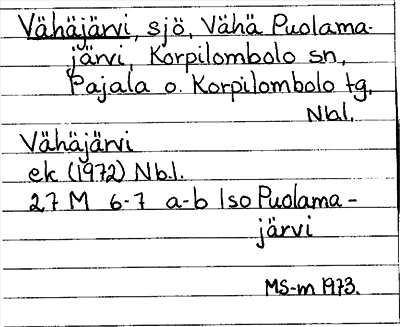 Vähäjärvi, sjö, Vähä Puolama-
järvi, Korpilombolo sn,
Pajala o. Korpilombolo tg.
Nbl.
Vähäjärvi
ek (1972) Nb.l.
27 M 6-7 a-b Iso Puolama-
järvi
MS-m 1973.